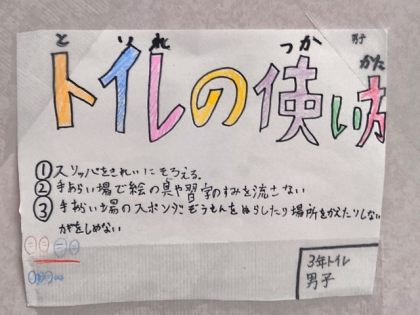 と い れ つか かた
トイレの使い方
①スリッパをきれいにそろえる。
②手あらい場で絵の具や習字のすみを流さない
③手あらい場のスポンジやぞうきんをぬらしたり場所をかえたりしない
3年トイレ
男子